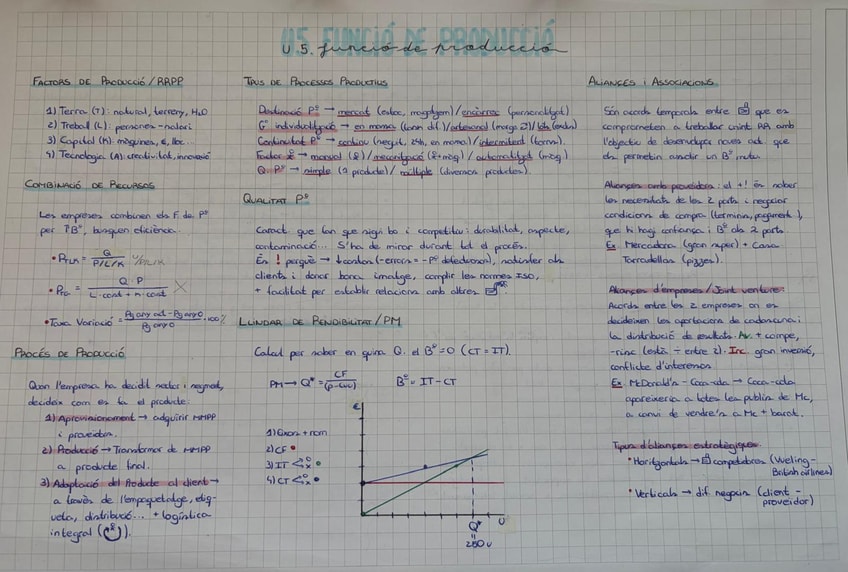 U.5. FUNCIÓ DE PRODUCCIÓ
U.5. funció de producció
FACTORS DE PRODUCCIÓ / RRPP
1) Terra (T): natural, terreny, H₂O
2) Treball (L): persones - salari
3) Capital (K): màquines, €, lloc...
4) Tecnologia (A): creativitat, innovació
COMBINACIÓ DE RECURSOS
Les empreses combinen els F. de Pº
per ↑Bº, busquen eficiència.
Q
P/L/K
Q · P
L · cost + K · cost
• Taxa Variació = Pg any act - Pg any 0 / Pg any 0 · 100%
PROCÉS DE PRODUCCIÓ
Quan l'empresa ha decidit sector i segment,
decideix com es fa el producte:
1) Aprovisionament → adquirir MMPP
i proveïdors.
2) Producció → Transformar de MMPP
a producte final.
3) Adaptació del Producte al client →
a través de l'empaquetatge, etiq-
ueta, distribució... + logística
integral
TIPUS DE PROCESSOS PRODUCTIUS
Destinació Pº → mercat (estoc, magatzem) / encàrrec (personalitzat)
Gº individualització → en massa
Continuïtat Pº → continu (negoci, 24h, en massa) / intermitent (torns).
Factor → manual / mecanització / automatitzat (màq)
Q. Pº → simple (1 producte) / múltiple (diversos productes).
QUALITAT Pº
Caract. que fan que sigui bo i competitiu: durabilitat, aspecte,
contaminació... S'ha de mirar durant tot el procés.
És ! perquè → ↓costos (-errors = -Pº defectuosos), satisfer als
clients i donar bona imatge, complir les normes ISO,
+ facilitat per establir relacions amb altres
LLINDAR DE RENDIBILITAT / PM
Càlcul per saber en quina Q. el Bº=0 (CT = IT).
PM → Q* = CF / (p-cvu)
Bº = IT - CT
1) Eixos + nom
2) CF
3) IT
4) CT
€
U
Q*
=
250 u
ALIANCES I ASSOCIACIONS
Són acords temporals entre que es
comprometen a treballar conjunt. AA amb
l'objectiu de desenvolupar noves act. que
els permetin assolir un Bº mutu.
Aliances amb proveïdors: el +! és saber
les necessitats de les 2 parts i negociar
condicions de compra (terminis, pagament...),
que hi hagi confiança i Bº als 2 parts.
Ex. Mercadona (gran super) + Casa
Tarradellas (pizzes).
Aliances d'empreses / Joint venture:
Acords entre les 2 empreses on es
decideixen les aportacions de cadascuna i
la distribució de resultats. Av. + compe,
-risc (està ÷ entre 2). Inc. gran inversió,
conflicte d'interessos.
Ex. McDonald's - Coca-cola → Coca-cola
apareixeria a totes les publis de Mc,
a canvi de vendre's a Mc + barat.
Tipus d'aliances estratègiques
• Horitzontals → competidores (Vueling -
British airlines)
• Verticals → dif. negocis (client -
proveïdor)